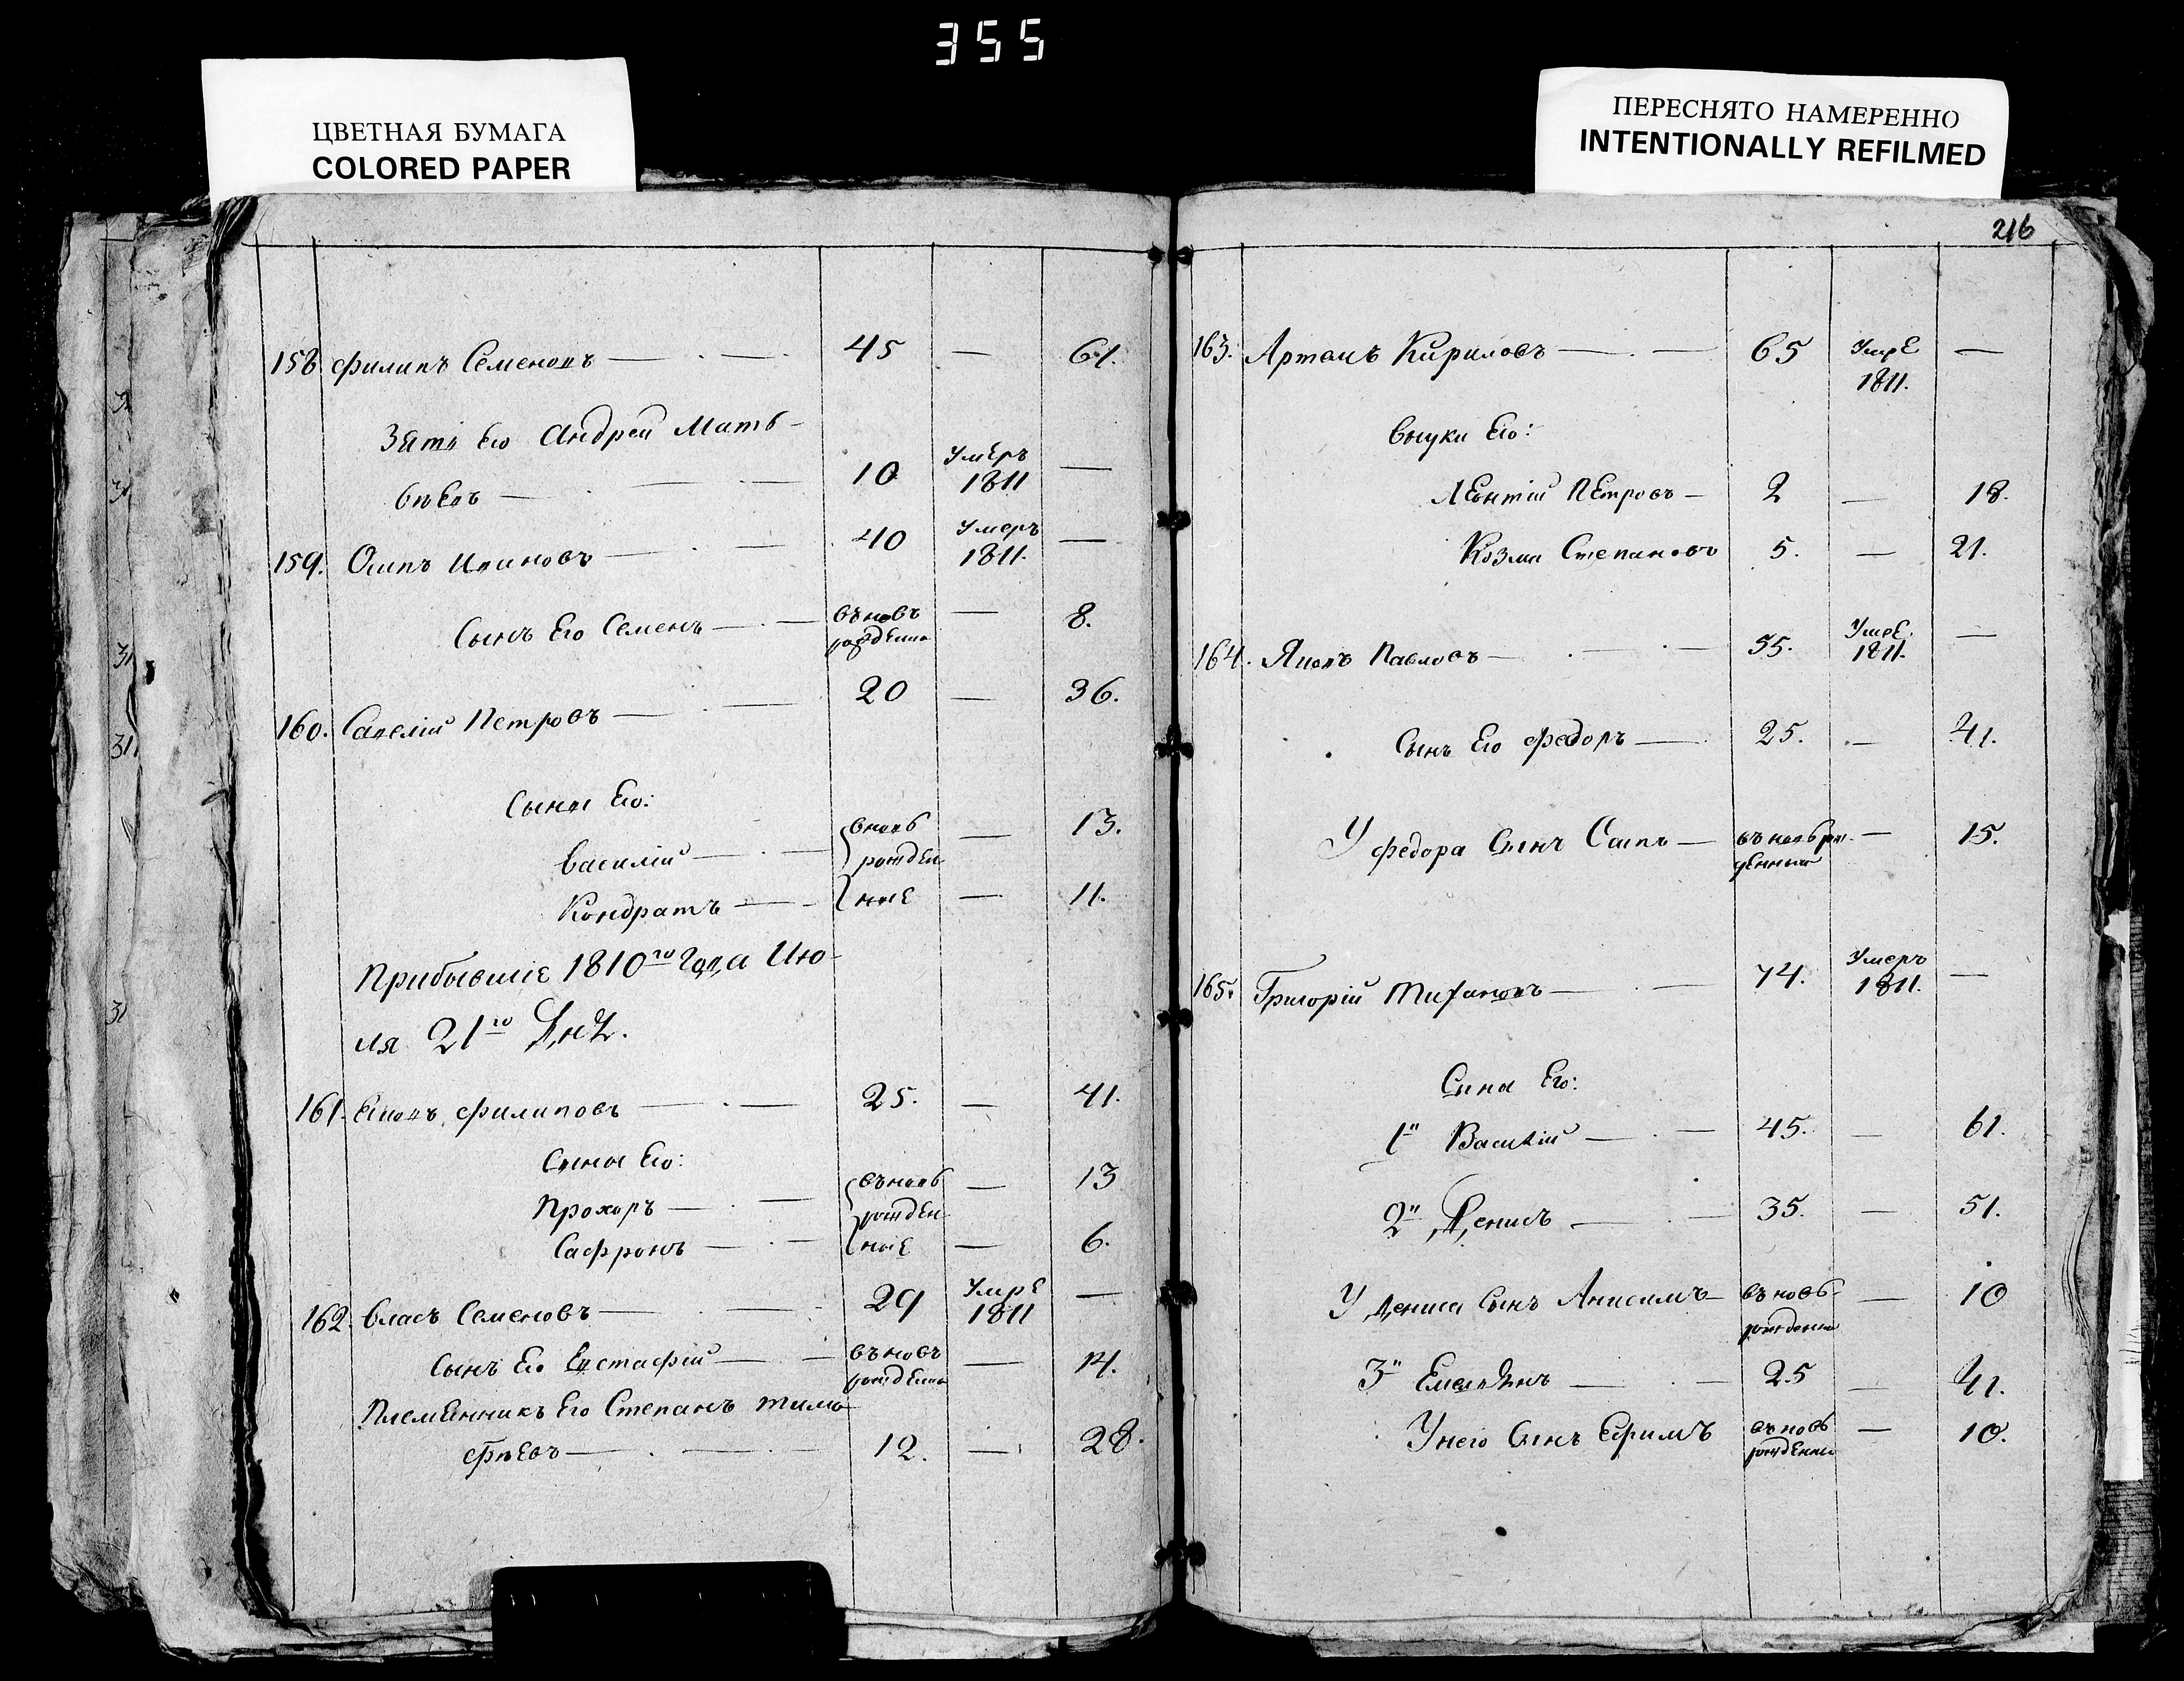 355
ЦВЕТНАЯ БУМАГА
COLORED PAPER
ПЕРЕСНЯТО НАМЕРЕННО
INTENTIONALLY REFILMED
158 Филипъ Семеновъ — 45 — 61.
Зять Его Андрей Мать-
вѣевъ — 10 Умеръ 1811 —
159. Осипъ Ивановъ — 40 Умеръ 1811. —
Сынъ Его Семенъ — вновь — 8.
160. Савелій Петровъ — 20 — 36.
Сыны Его:
Василій — вновь рожден — 13.
Кондратъ — ные — 11.
Прибывшіе 1810го Года Ию-
ля 21го Дня.
161. Филиповъ — 25. — 41.
Сыны Его:
Прохоръ — въновь рожден — 13
Сафронъ — ные — 6.
162 Власъ Семеновъ — 29 Умре 1811 —
Сынъ Его Евстафій — въновь — 14.
Племянникъ Его Степанъ Тимо
фѣевъ — 12. — 28.
216
163. Артемъ Кириловъ — 65 Умре 1811. —
Внуки Его:
Леонтій Петровъ — 2 — 18.
Козма Степановъ 5. — 21.
164. Яковъ Павловъ — 55. Умре. 1811. —
Сынъ Его Федоръ — 25. — 41.
У Федора Сынъ Осипъ — — 15.
165. Григорій — 74. Умеръ 1811. —
Сына Его:
1й Василій — 45. — 61.
2й Денисъ — 35. — 51.
У Дениса Сынъ Анисимъ — въновь — 10
3й Емельянъ — 25 — 41.
Унего Сынъ Ефимъ въновь — 10.